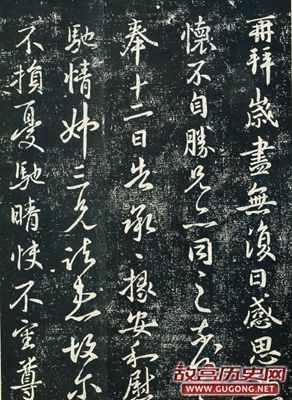 再拜歲盡無復日感思
懷不自勝兄亦同之
奉十二日告承承掾安和慰
馳情姊三兄諸患故尔
不損憂馳晴快不宣尊
故宫历史网
WWW.GUGONG.NET